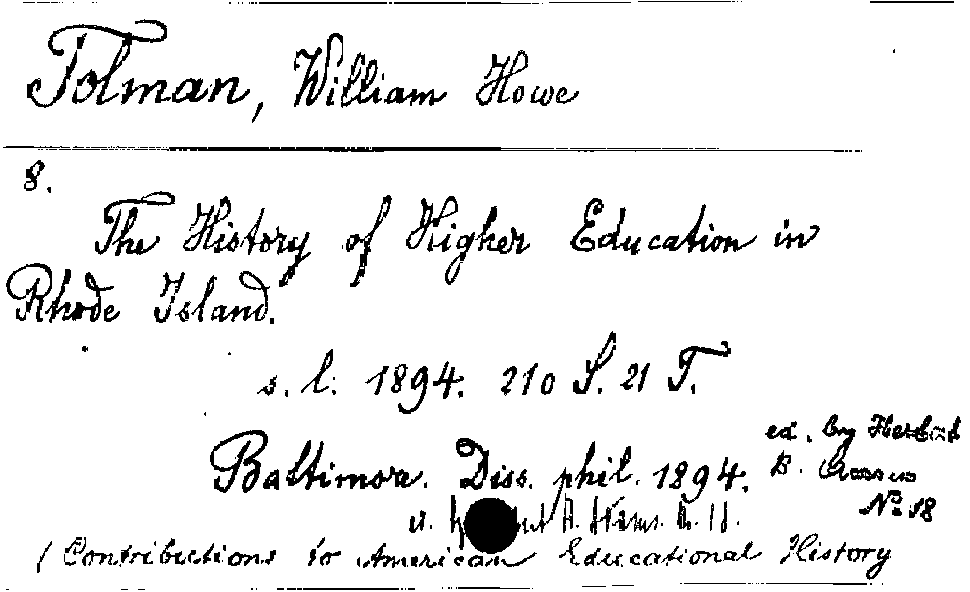 Tolman, William Howe
8.
The History of Higher Education in
Rhode Island.
s. l. 1894. 210 S. 21 T.
Baltimore. Diss. phil. 1894.
ed. by Herbert
B. Adams
No 18
(Contributions to American Educational History